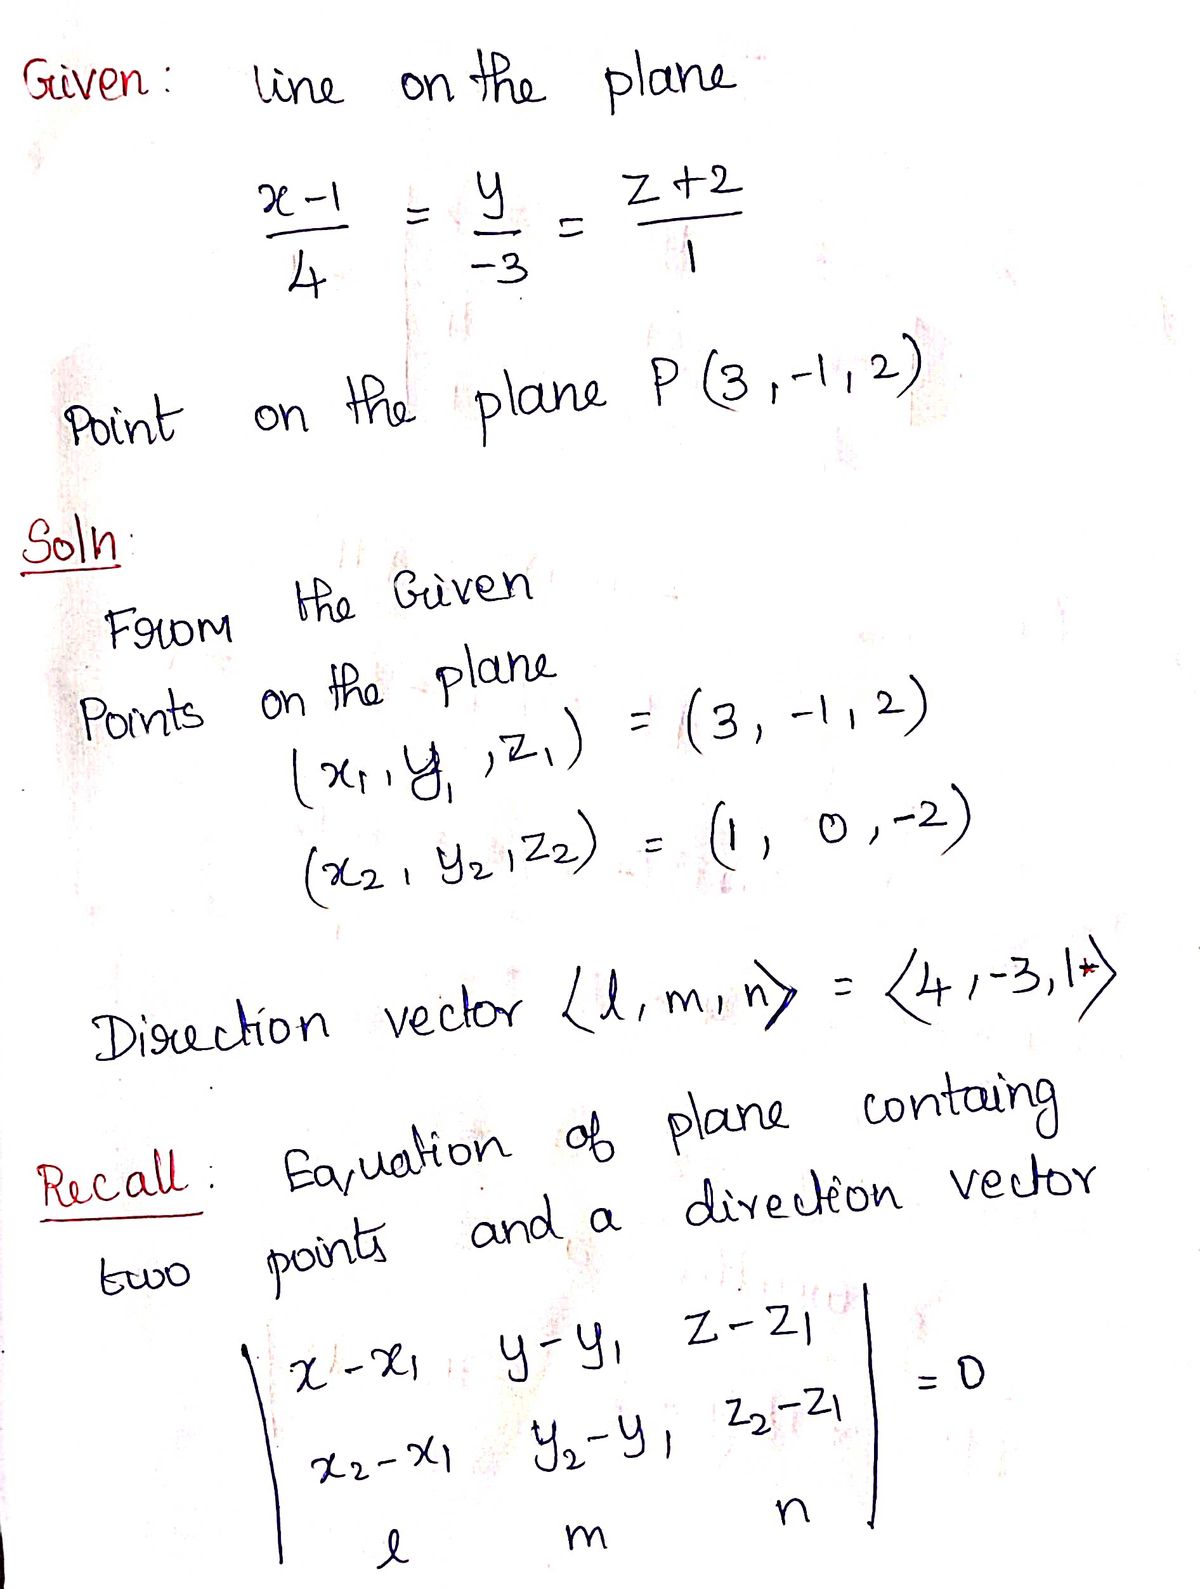 Given: line on the plane
x-1/4 = y/-3 = z+2/1
Point on the plane P(3,-1,2)
Soln:
From the Given
Points on the plane
(x₁,y₁,z₁) = (3,-1,2)
(x₂,y₂,z₂) = (1,0,-2)
Direction vector ⟨l,m,n⟩ = ⟨4,-3,1⟩
Recall: Equation of plane containg
two points and a direction vector
| x-x₁ y-y₁ z-z₁ |
| x₂-x₁ y₂-y₁ z₂-z₁ | = 0
| l m n |